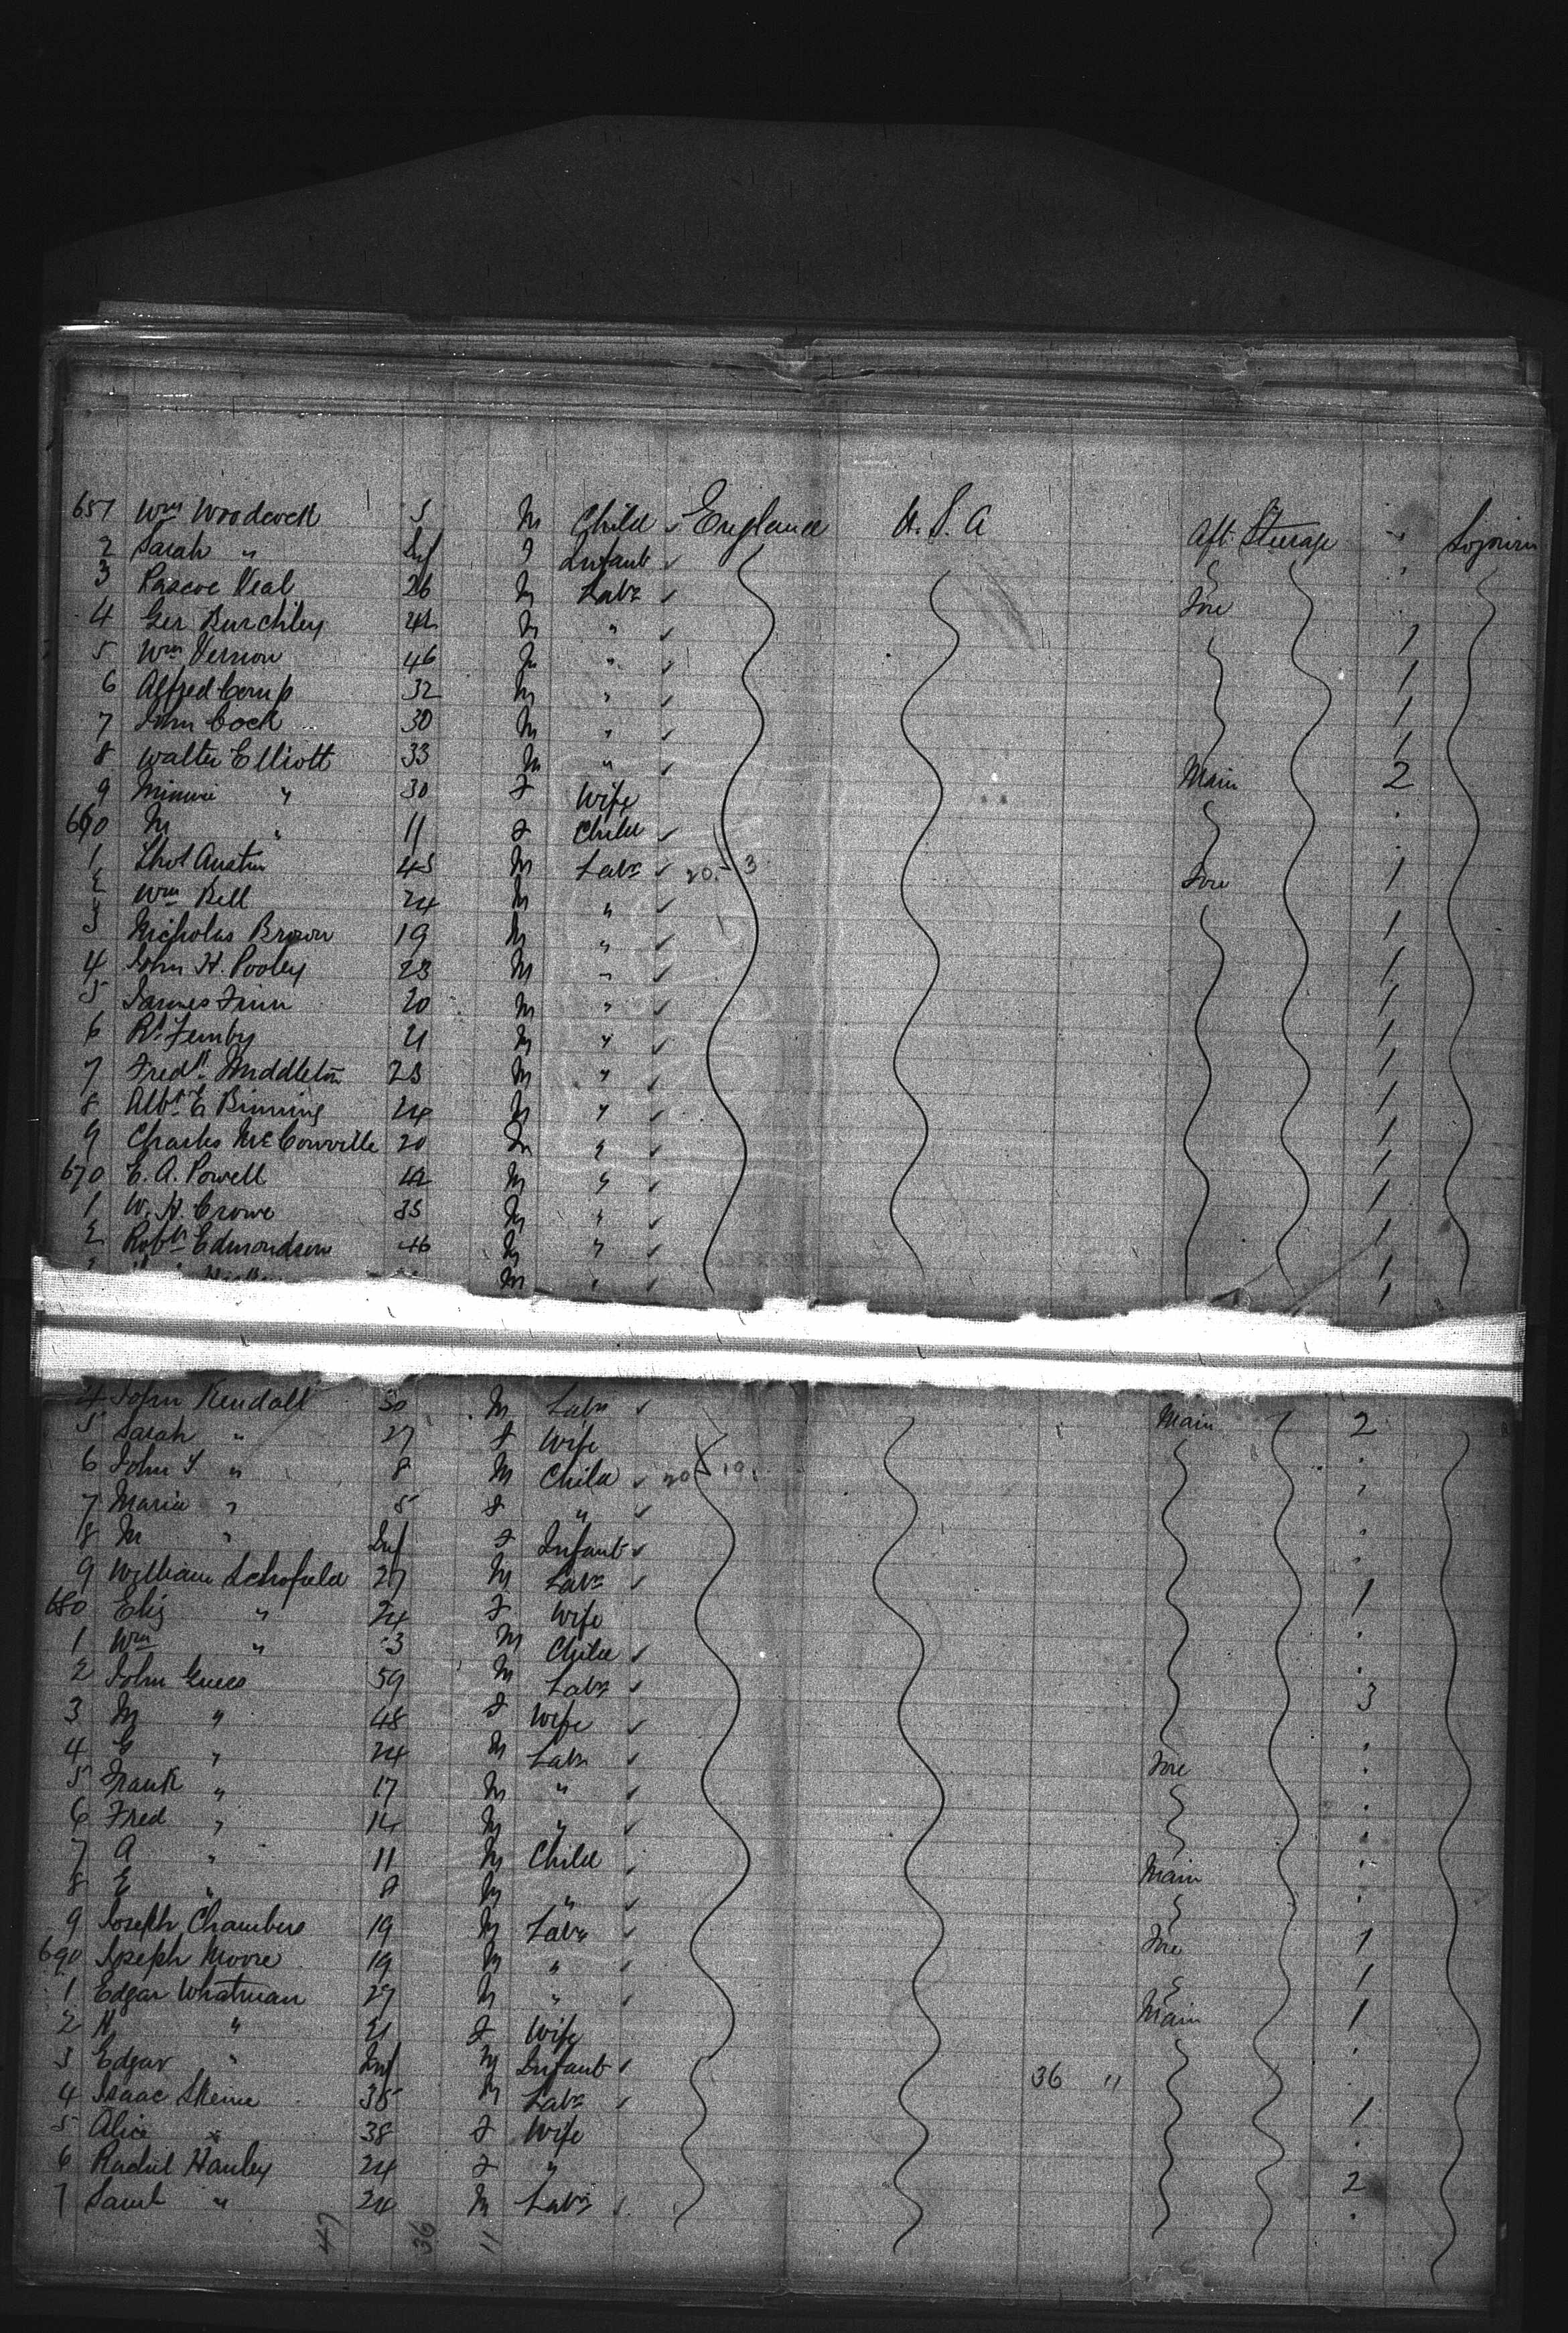 651 Wm Woodcock 5 M Child ✓ England U.S.A Aft. Sturage " Sojourn
2 Sarah " Inf F Infant ✓
3 Pascoe Veal 26 M Labr ✓ Fore
4 Geo Burchley M " ✓ 1
5 Wm Vernon 46 M " ✓ 1
6 Alfred Cemp 32 M " ✓ 1
7 John Cock 30 M " ✓ 1
8 Walter Elliott 33 M " ✓ Main 2
9 Minnie " 30 F Wife
660 M " 11 F Child ✓
1 Thos Austin 45 M Labr ✓ 20 - 3 Fore 1
2 Wm Bell 24 M " ✓ 1
3 Nicholas Brown 19 M " ✓ 1
4 John H. Pooley 23 M " ✓ 1
5 James Finn 20 M " ✓ 1
6 Rt. Fenby 21 M " ✓ 1
7 Fredk. Middleton 23 M " ✓ 1
8 Albt. E Binning 24 M " ✓ 1
9 Charles McConville 20 M " ✓ 1
670 E. A. Powell M " ✓ 1
1 W. H. Crowe 35 M " ✓ 1
2 Robt. Edmondson 46 M " ✓ 1
M " ✓ 1
4 John Kendall 30 M Labr ✓ Main 2
5 Sarah " 27 F Wife
6 John " 8 M Child ✓ 20 - 10
7 Maria " 5 F " ✓
8 M " Inf F Infant ✓
9 William Schofield 27 M Labr ✓ 1
680 Eliz " 24 F Wife
1 Wm " 3 M Child ✓
2 John 59 M Labr ✓ 3
3 M " 48 F Wife ✓
4 G " 24 M Labr ✓ Fore
5 Frank " 17 M " ✓
6 Fred " 14 M " ✓
7 A " 11 M Child ✓ Main
8 E " 8 M " ✓
9 Joseph Chambers 19 M Labr ✓ Fore 1
690 Joseph Moore 19 M " ✓ 1
1 Edgar Whatman 27 M " ✓ Main 1
2 H " 21 F Wife
3 Edgar " Inf M Infant ✓ 36 11
4 Isaac Skeine 35 M Labr ✓ 1
5 Alice " 38 F Wife
6 Rachel Hanley 24 F " 2
7 Saml " 24 M Labr ✓
47 36 11